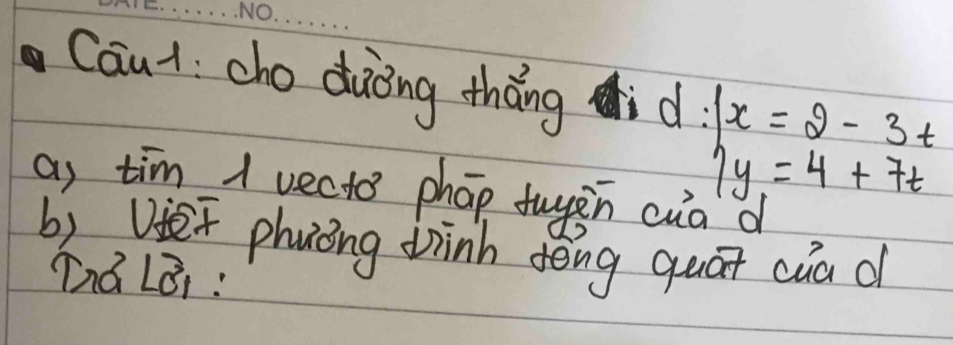 DATE........NO........
Câu 1: cho đường thẳng d: { x = 2 - 3t
y = 4 + 7t
a) tìm 1 vectơ pháp tuyến của d
b) Viết phương trình tổng quát của d
Trả Lời: